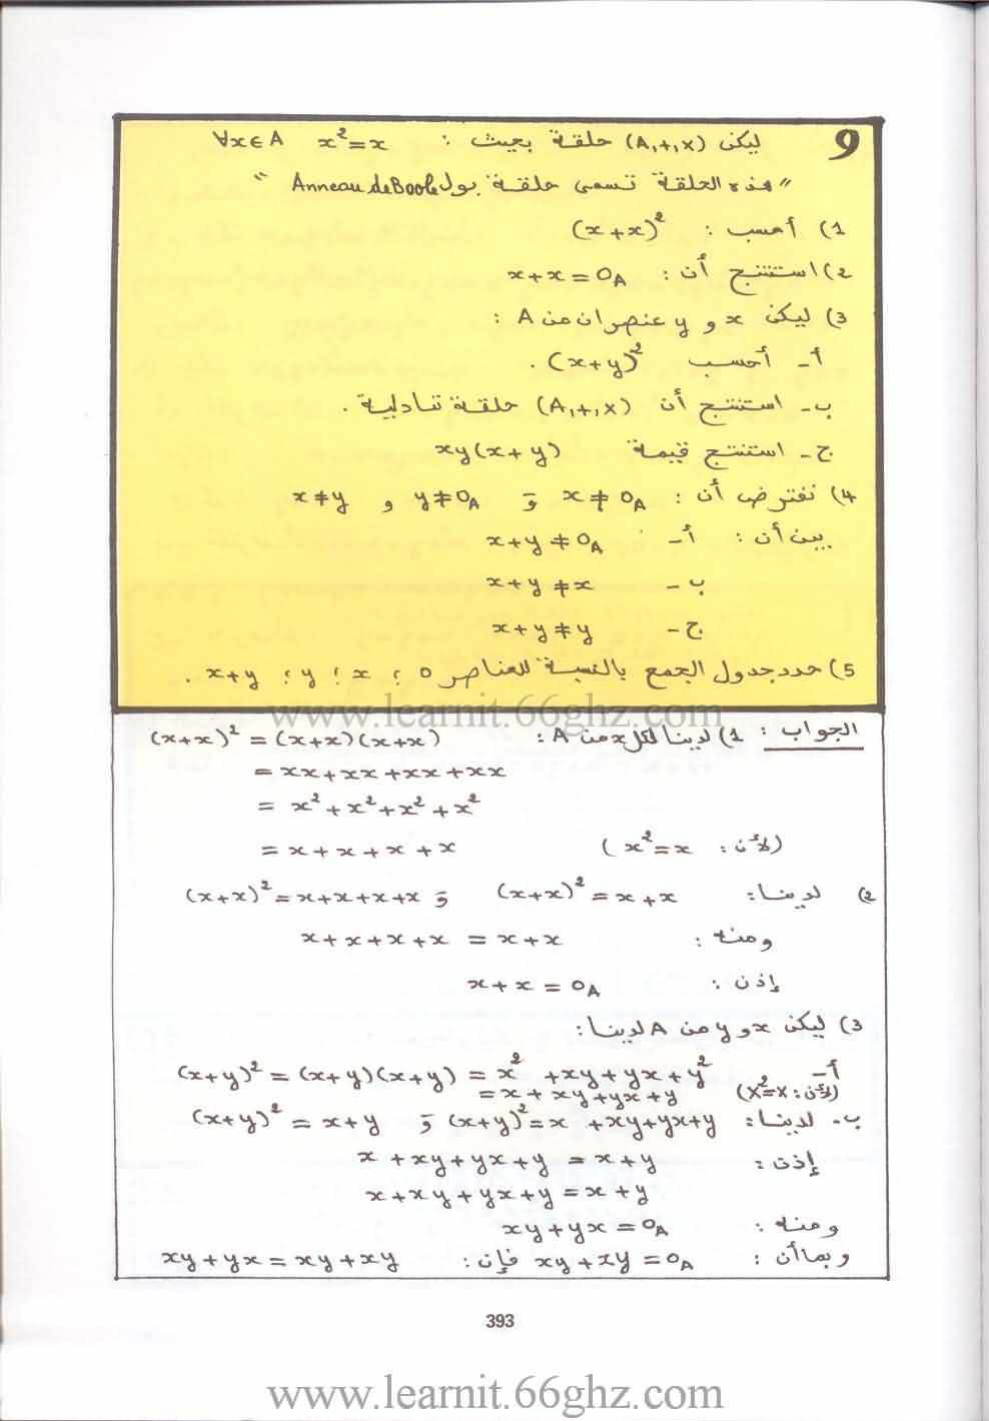 9 ليكن (A,+,×) حلقة بحيث : x²=x ∀x∈A
"هذه الحلقة تسمى حلقة بول Anneau de Boole"
1) أحسب : (x+x)²
2) استنتج أن : x+x=0A
3) ليكن x و y عنصران من A :
أ- أحسب (x+y)² .
ب- استنتج أن (A,+,×) حلقة تبادلية .
ج- استنتج قيمة xy(x+y)
4) نفترض أن : x≠0A و y≠0A و x≠y
بين أن : أ- x+y≠0A
ب- x+y≠x
ج- x+y≠y
5) حدد جدول الجمع بالنسبة للعناصر 0 ; x ; y ; x+y .
www.learnit.66ghz.com
الجواب : 1) لدينا لكل x من A : (x+x)² = (x+x)(x+x)
= xx+xx+xx+xx
= x²+x²+x²+x²
= x+x+x+x (لأن : x²=x)
2) لدينا : (x+x)²=x+x و (x+x)²=x+x+x+x
ومنه : x+x+x+x = x+x
إذن : x+x=0A
3) ليكن x و y من A لدينا :
أ- (x+y)² = (x+y)(x+y) = x²+xy+yx+y²
= x+xy+yx+y (لأن : x²=x)
ب- لدينا : (x+y)²=x+xy+yx+y و (x+y)²=x+y
إذن : x+xy+yx+y = x+y
x+xy+yx+y = x+y
ومنه : xy+yx=0A
وبما أن : xy+xy=0A فإن : xy+yx=xy+xy
393
www.learnit.66ghz.com